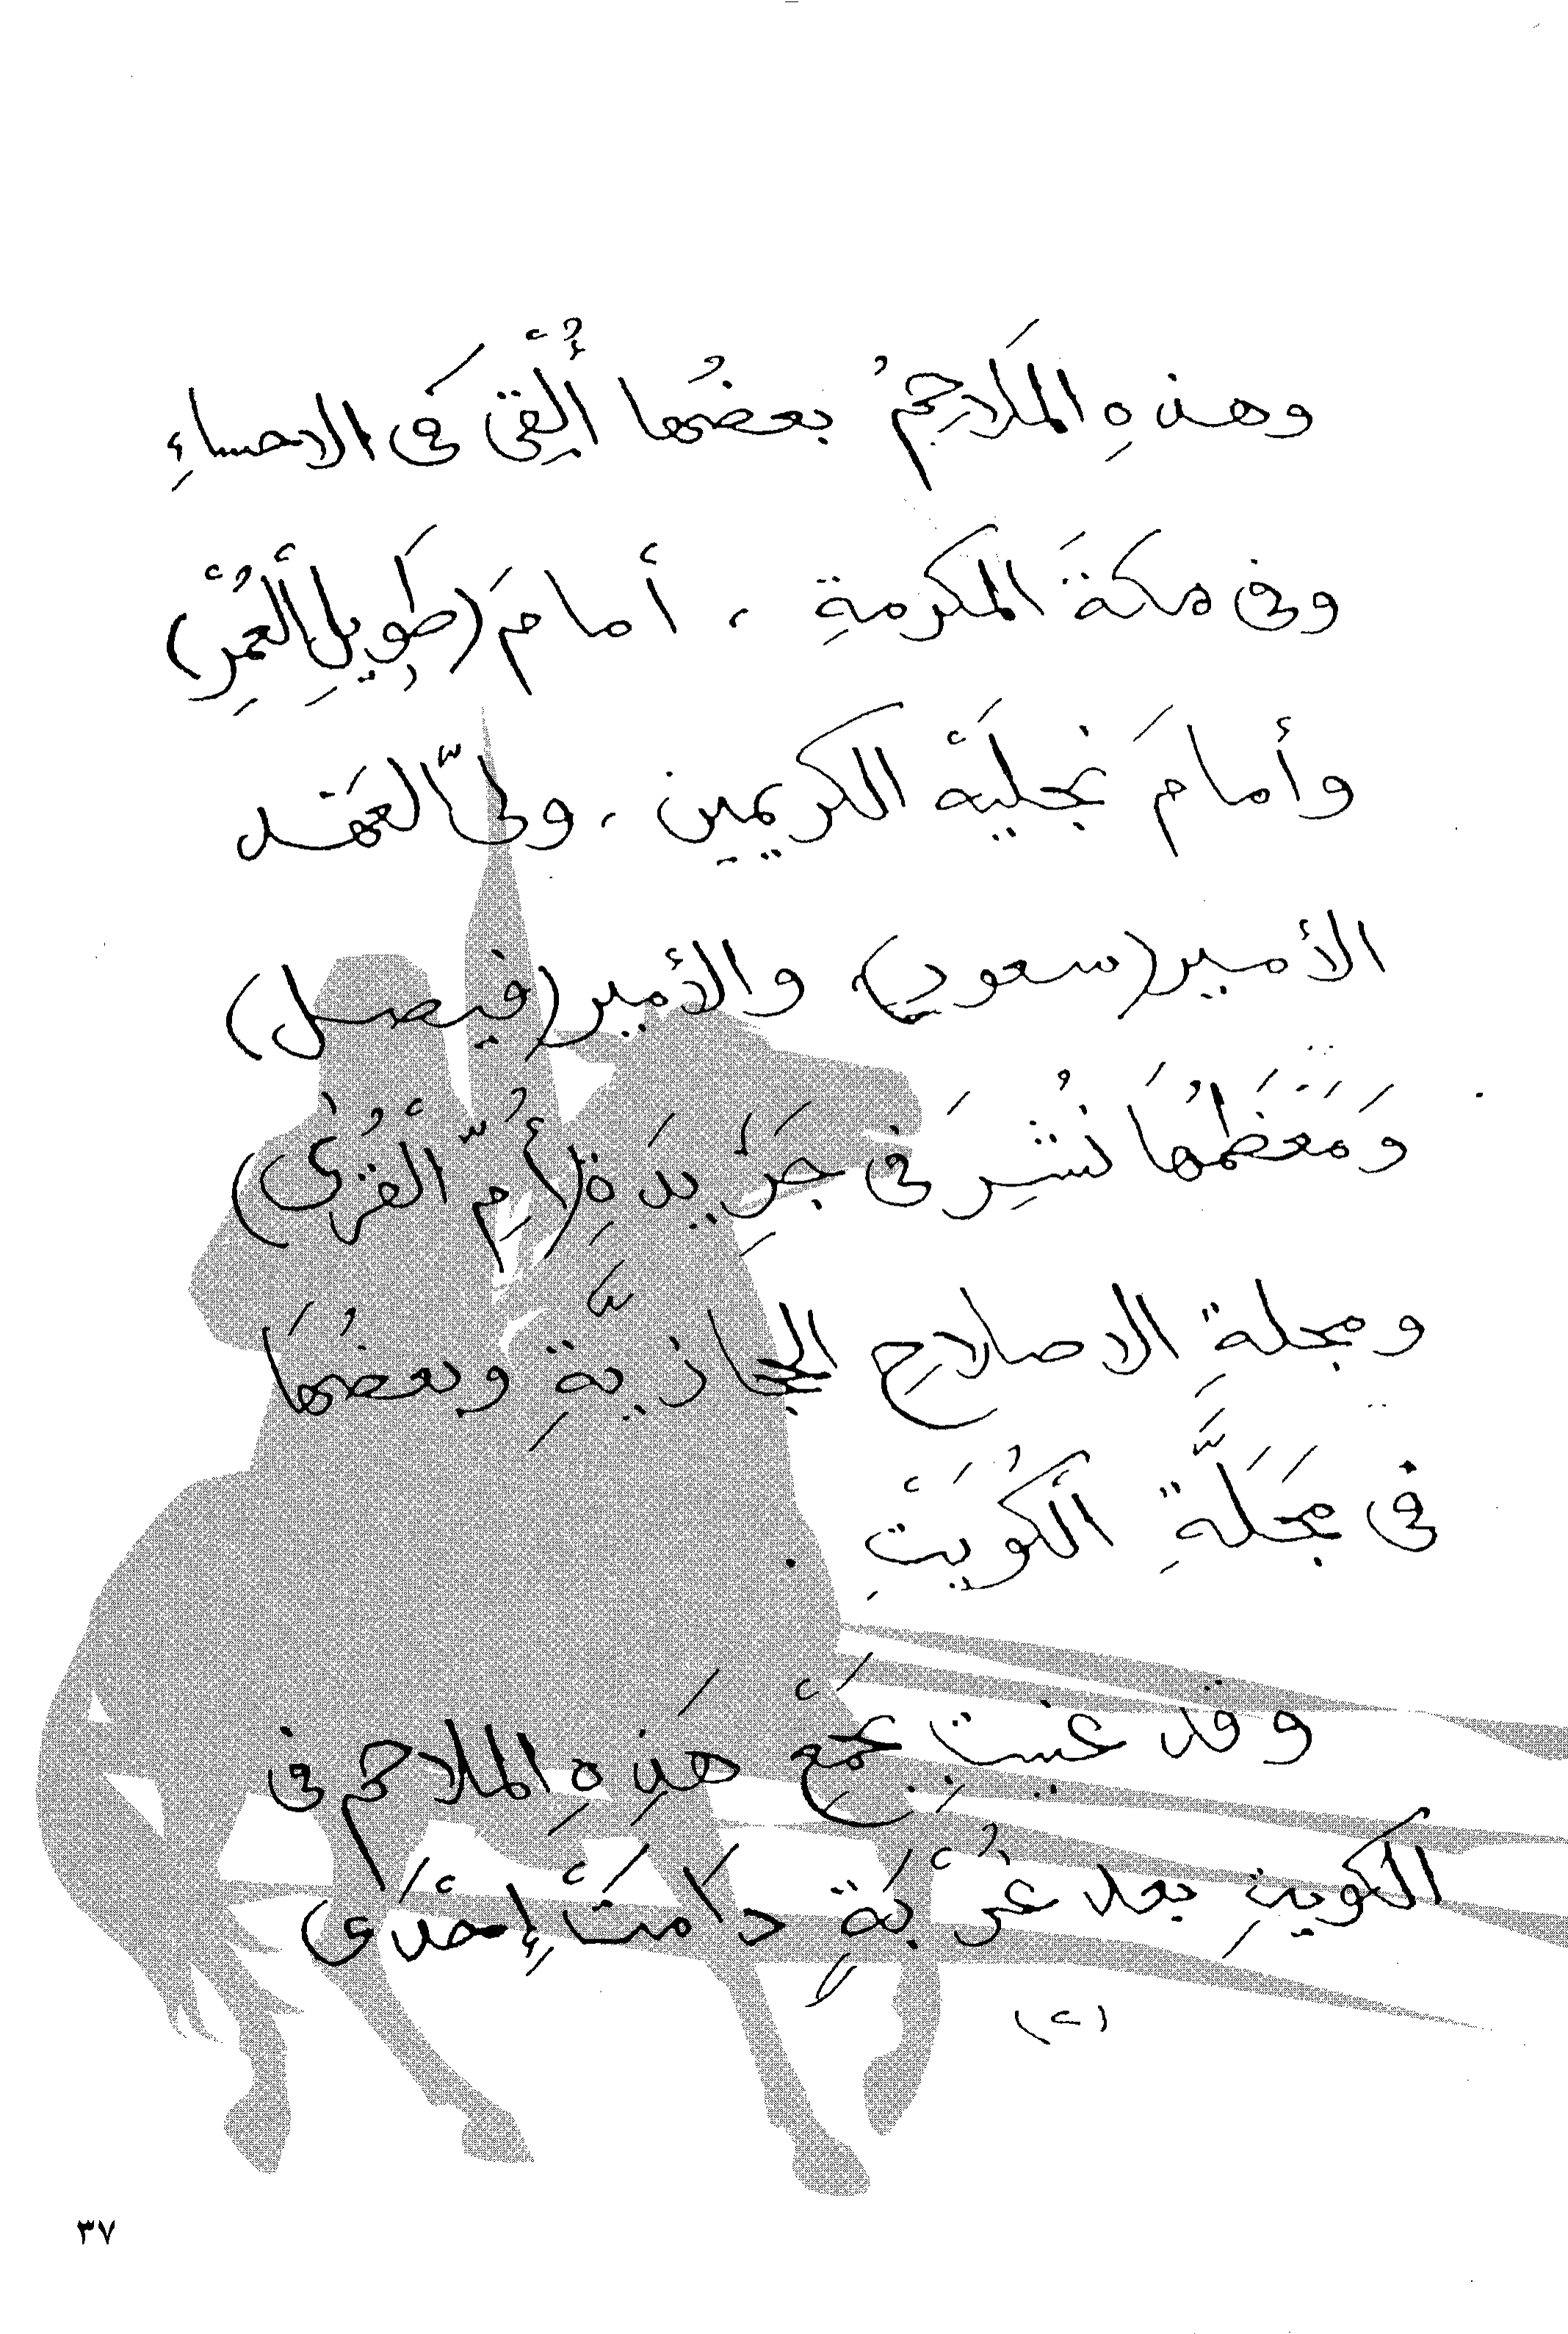 وهذهِ المَلاحِمُ بعضُها أُلْقِيَ في الاحساءِ
وفي مكةَ المكرمةِ ، أمامَ (طَويلِ ألعُمْرِ)
وأمامَ نجليَهْ الكريمين ، وليّ العَهْد
الأمير (سعود) والأمير (فيصل)
وَمَعَظمُهَا نُشِرَ في جَرِيدَةِ (أُمِّ ألْقُرىٰ)
ومجلةِ الاصلاحِ الحجازيَّةِ وبعضُهَا
في مَجَلَّةِ ألكُوَيْتِ .
وقد عنيتِ بجَمْعِ هَذِهِ الملاحم في
الكويتِ بعد غُرْبَةٍ دَامَتْ إحْدَى
(٢)
٣٧